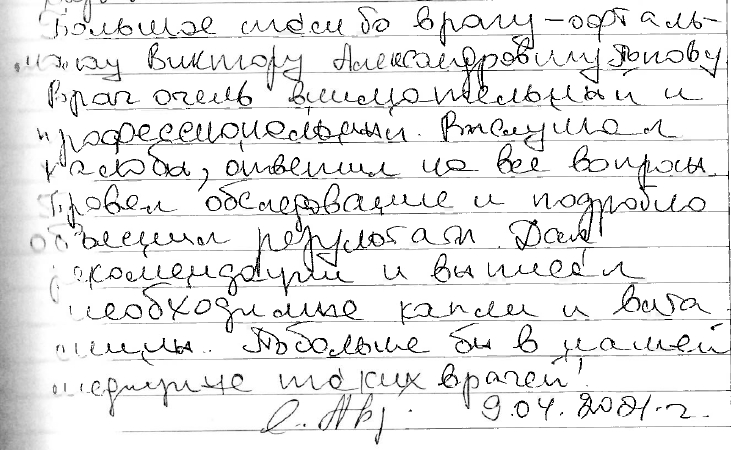 Большое спасибо врачу-офталь-
мологу Виктору Александровичу
Врач очень внимательный и
профессиональный. Выслушал
жалобы, ответил на все вопросы.
Провел обследование и подробно
объяснил результаты. Дал
рекомендации и выписал
необходимые капли и вита
мины. Побольше бы в нашей
медицине таких врачей!
9.04.2021.г.